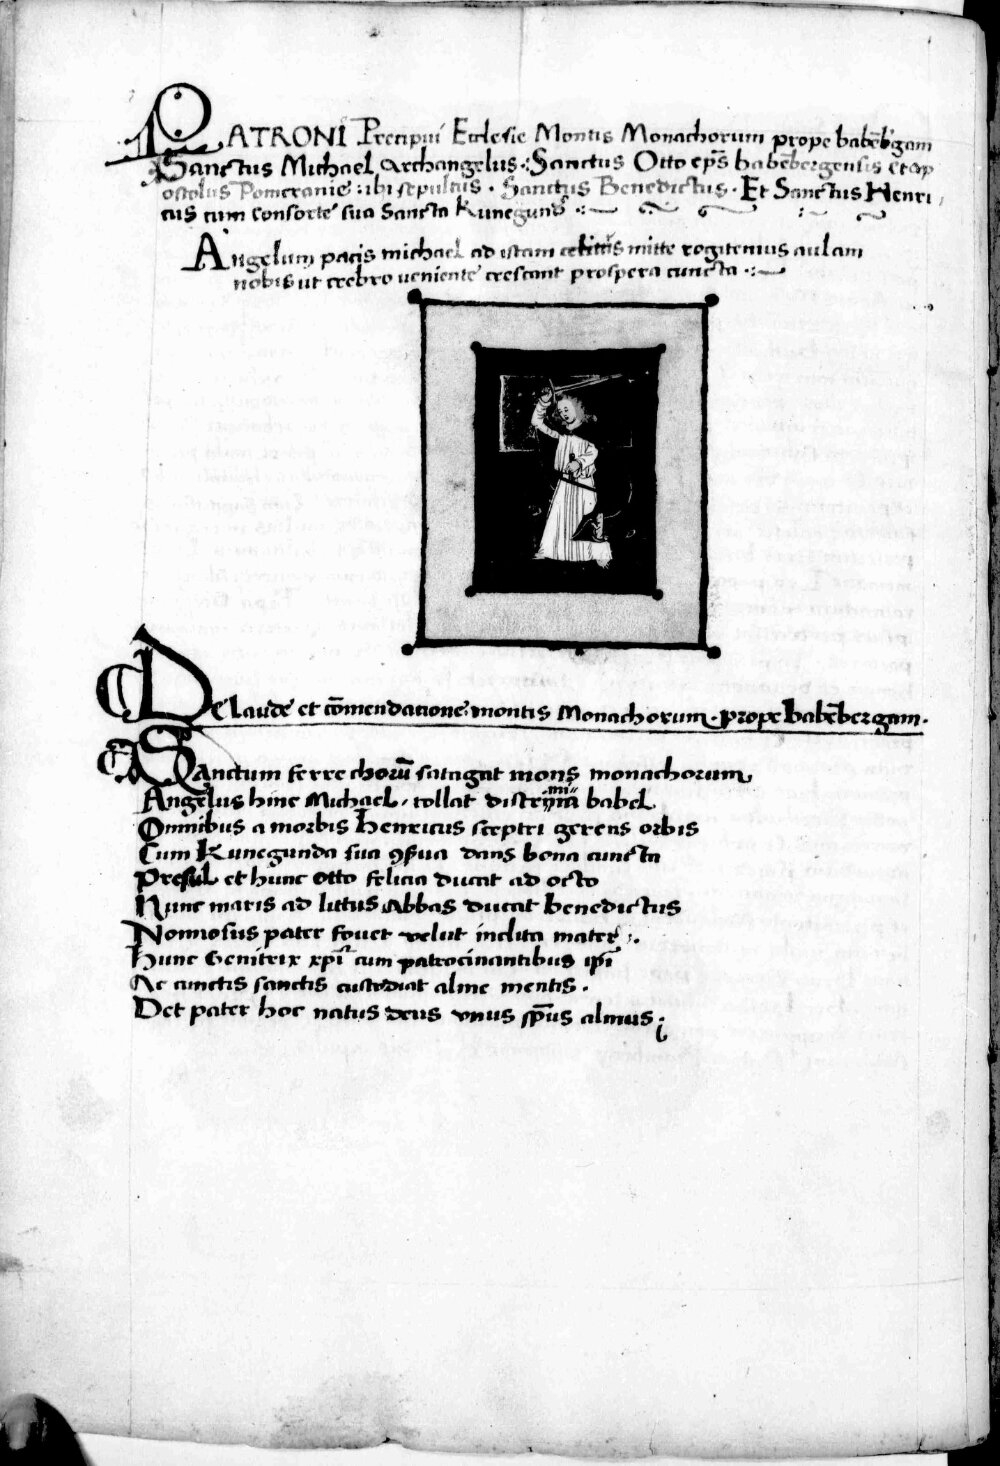 PATRONI Precipui Ecclesie Montis Monachorum prope babēb'gam
Sanctus Michael Archangelus · Sanctus Otto ep̄s babēbergensis et ap
ostolus Pomeranie ibi sepultus · Sanctus Benedictus · Et Sanctus Henri
cus cum consorte sua Sancta Kunegund
Angelum pacis michael ad istam celitus mitte rogitemus aulam
nobis ut crebro veniente crescant prospera cuncta
De laude et cōmendatione montis Monachorum · prope Babēbergam ·
Sanctum ferre chorū satagat mons monachorum
Angelus hinc Michael · tollat babel
Omnibus a morbis Henricus sceptri gerens orbis
Cum Kunegunda sua dans bona cuncta
Presul et hunc Otto felicia ducat ad octo
Nunc maris ad littus Abbas ducat benedictus
Nonnosus pater fovet velut inclita mater
Hunc Genitrix xp̄i cum patrocinantibus ip̄i
Ac cunctis sanctis custodiat alme mentis ·
Det pater hoc natus deus vnus sp̄us almus ;